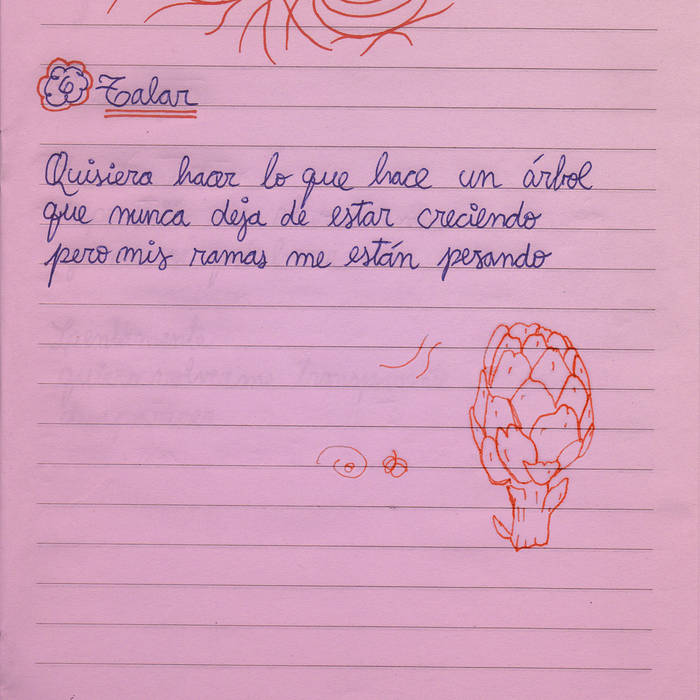 6 Talar
Quisiera hacer lo que hace un árbol
que nunca deja de estar creciendo
pero mis ramas me están pesando